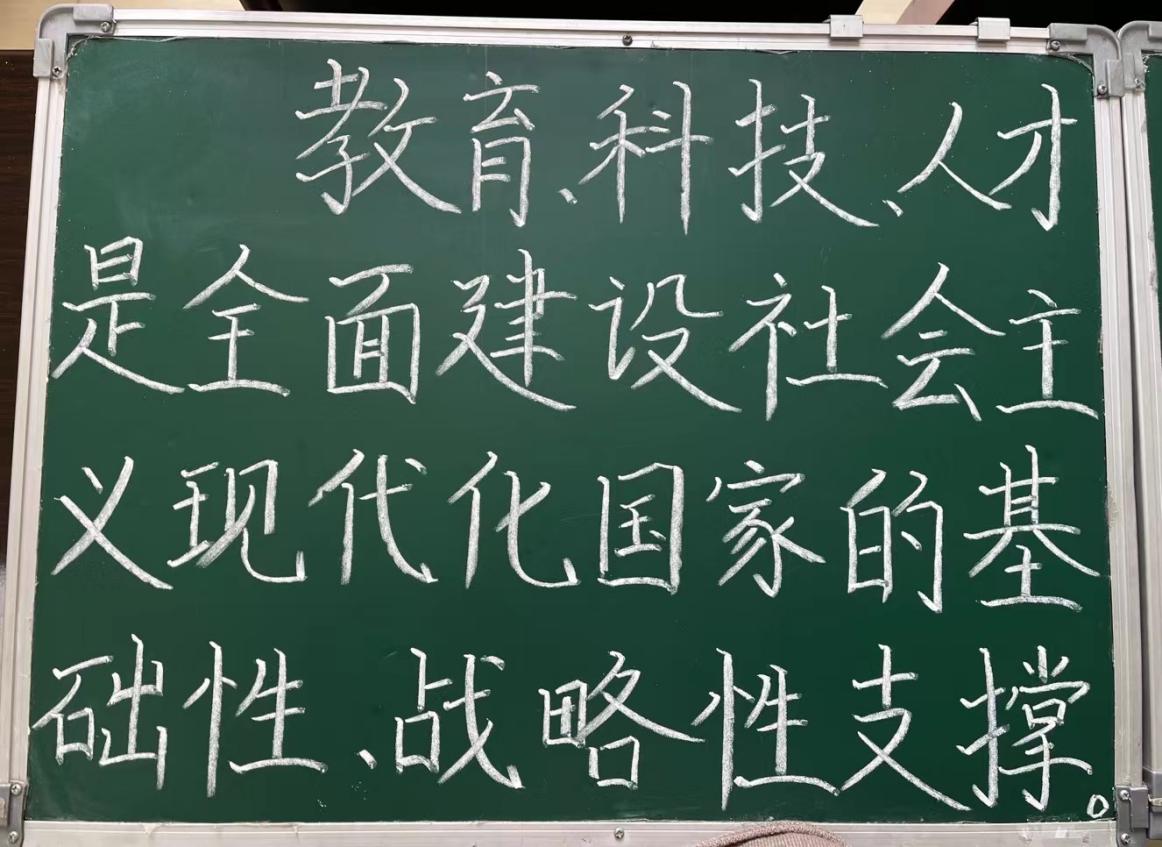 教育、科技、人才
是全面建设社会主
义现代化国家的基
础性、战略性支撑。